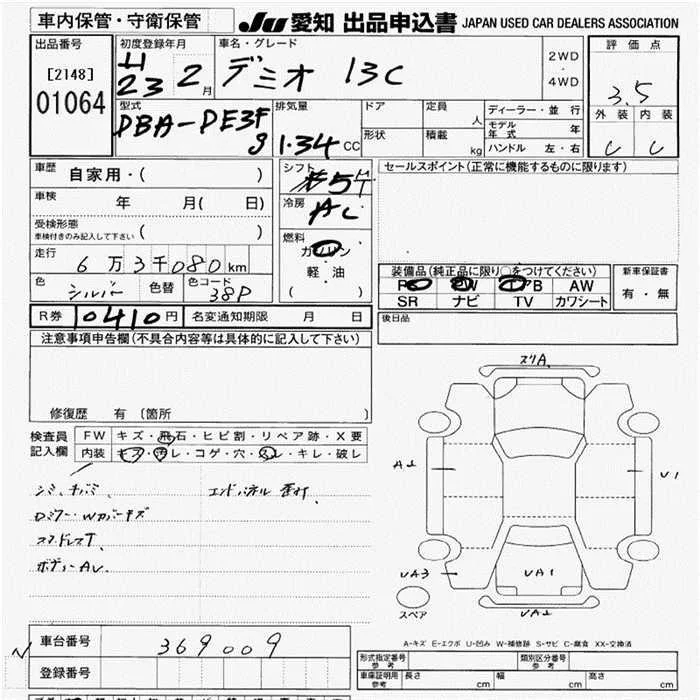 車内保管・守衛保管 JU 愛知 出品申込書 JAPAN USED CAR DEALERS ASSOCIATION
出品番号
[2148]
01064
初度登録年月
H 23 2月
車名・グレード
デミオ 13C
2WD
・
4WD
評価点
3.5
外装 内装
C C
型式
DBA-DE3F
排気量
1.34 CC
ドア
定員 人
形状
積載 kg
ディーラー・並行
モデル年式 年
ハンドル 左・右
車歴
自家用・( )
車検 年 月( 日)
受検形態
車検付きのみ記入して下さい ( )
走行
6万3千080km
色 シルバー 色替 色コード 38P
シフト
5MT
冷房
AC
燃料
ガソリン
軽油
( )
セールスポイント(正常に機能するものに限ります)
装備品(純正品に限り○をつけてください)
PS PW エアB AW
SR ナビ TV カワシート
新車保証書
有・無
R券 10410円 名変通知期限 月 日
後日品
注意事項申告欄(不具合内容等は具体的に記入して下さい)
修復歴 有 〔箇所
検査員
記入欄
FW キズ・飛石・ヒビ割・リペア跡・X要
内装 キズ・汚レ・コゲ・穴・スレ・キレ・破レ
エンドパネル
スリA
A1
U1
UA3
UA1
UA2
スペア
A-キズ E-エクボ U-凹み W-補修跡 S-サビ C-腐食 XX-交換済
車台番号 369009
登録番号
N
形式指定番号
参考
類別区分番号
参考
車庫証明用
参考
長さ cm 幅 cm 高さ cm